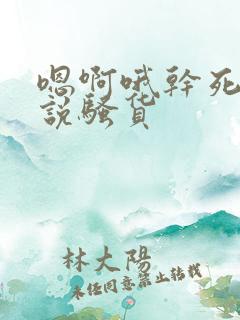 嗯啊哦幹死
說騷貨
林大陽
未经同意禁止转载